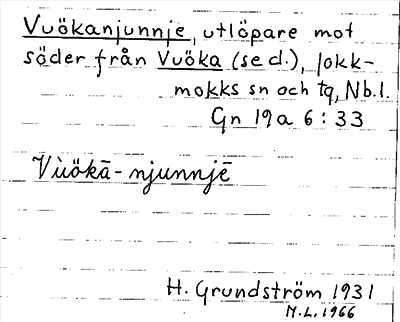 Vuökanjunnje, utlöpare mot
söder från Vuöka (se d.), Jokk-
mokks sn och tq, Nb.l.
Gn 19a 6:33
Vùökā-njunnjē
H. Grundström 1931
M.L. 1966